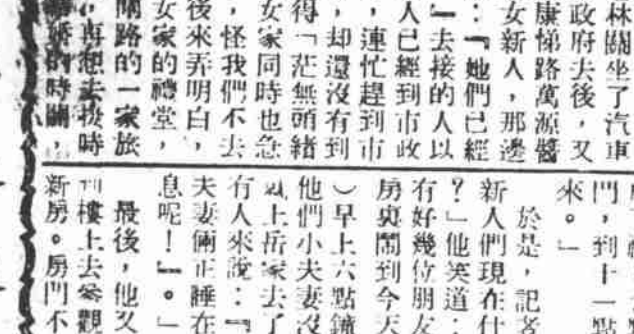 林關坐了汽車
政府去後，又
康悌路萬源醬
女新人，那邊
：『她們已經
』去接的人以
人已經到市政
，連忙趕到市
，却還沒有到
得「茫無頭緒
女家同時也急
，怪我們不去
後來弄明白，
女家的禮堂，
路的一家旅
再想去接時
的時關，
門，到十一點
來。」
於是，記者
新人們現在什
？」他笑道：
有好幾位朋友
房裏鬧到今天
）早上六點鐘
他們小夫妻沒
上岳家去了
有人來說：『
夫妻倆正睡在
息呢！』。」
最後，他又
樓上去參觀
新房。房門不